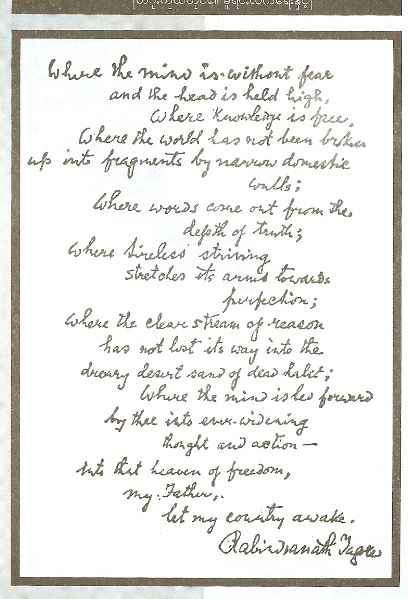 Where the mind is without fear
and the head is held high,
Where knowledge is free,
Where the world has not been broken
up into fragments by narrow domestic
walls;
Where words come out from the
depth of truth;
Where tireless striving
stretches its arms towards
perfection;
Where the clear stream of reason
has not lost its way into the
dreary desert sand of dead habit;
Where the mind is led forward
by thee into ever-widening
thought and action—
Into that heaven of freedom,
my Father,
let my country awake.
Rabindranath Tagore